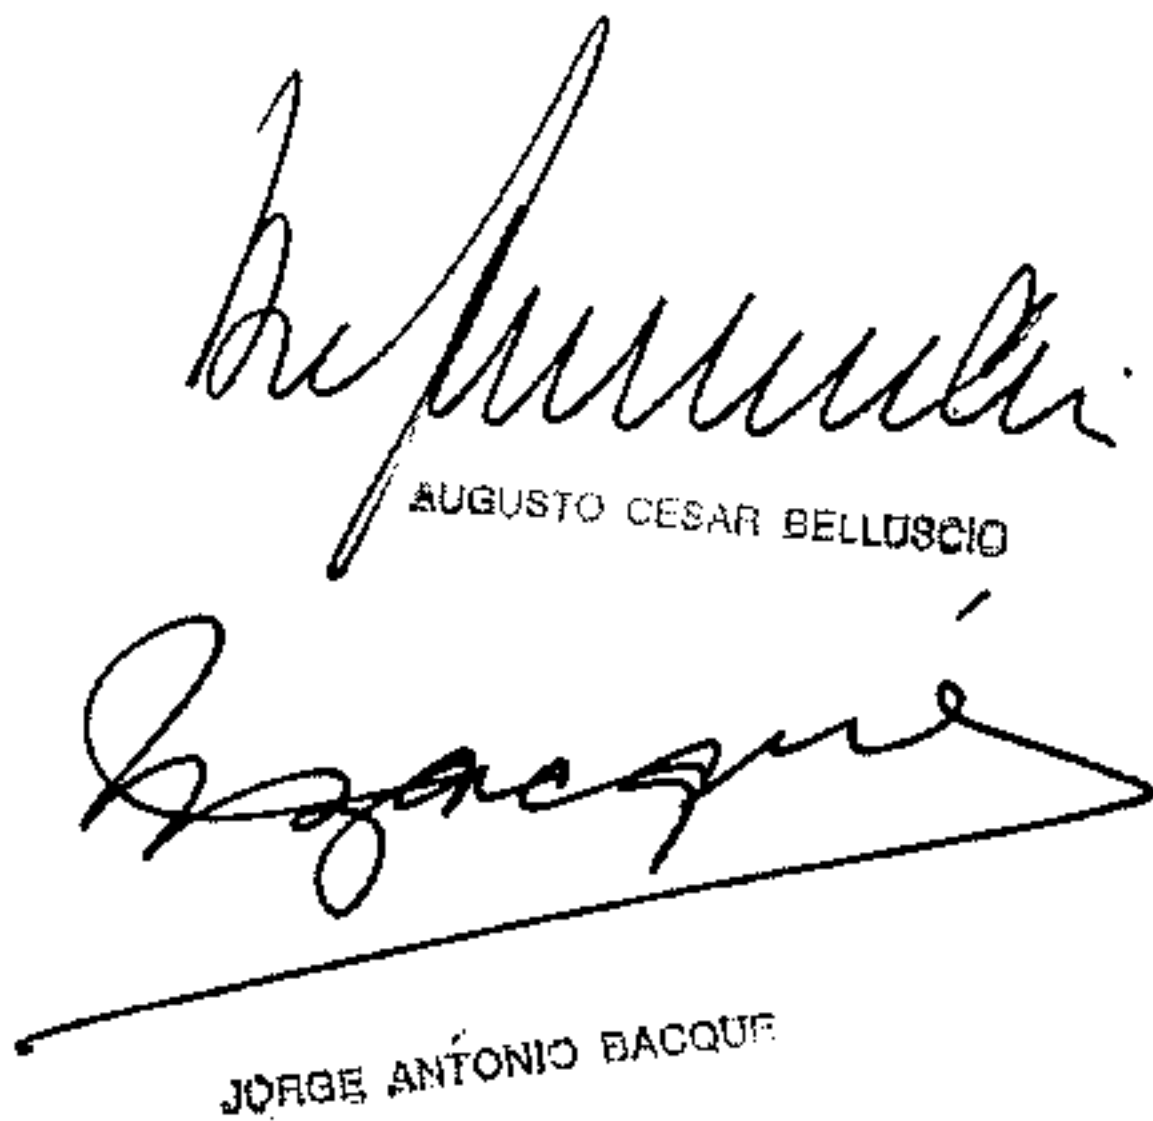 AUGUSTO CESAR BELLUSCIO
Bacqué
JORGE ANTONIO BACQUE